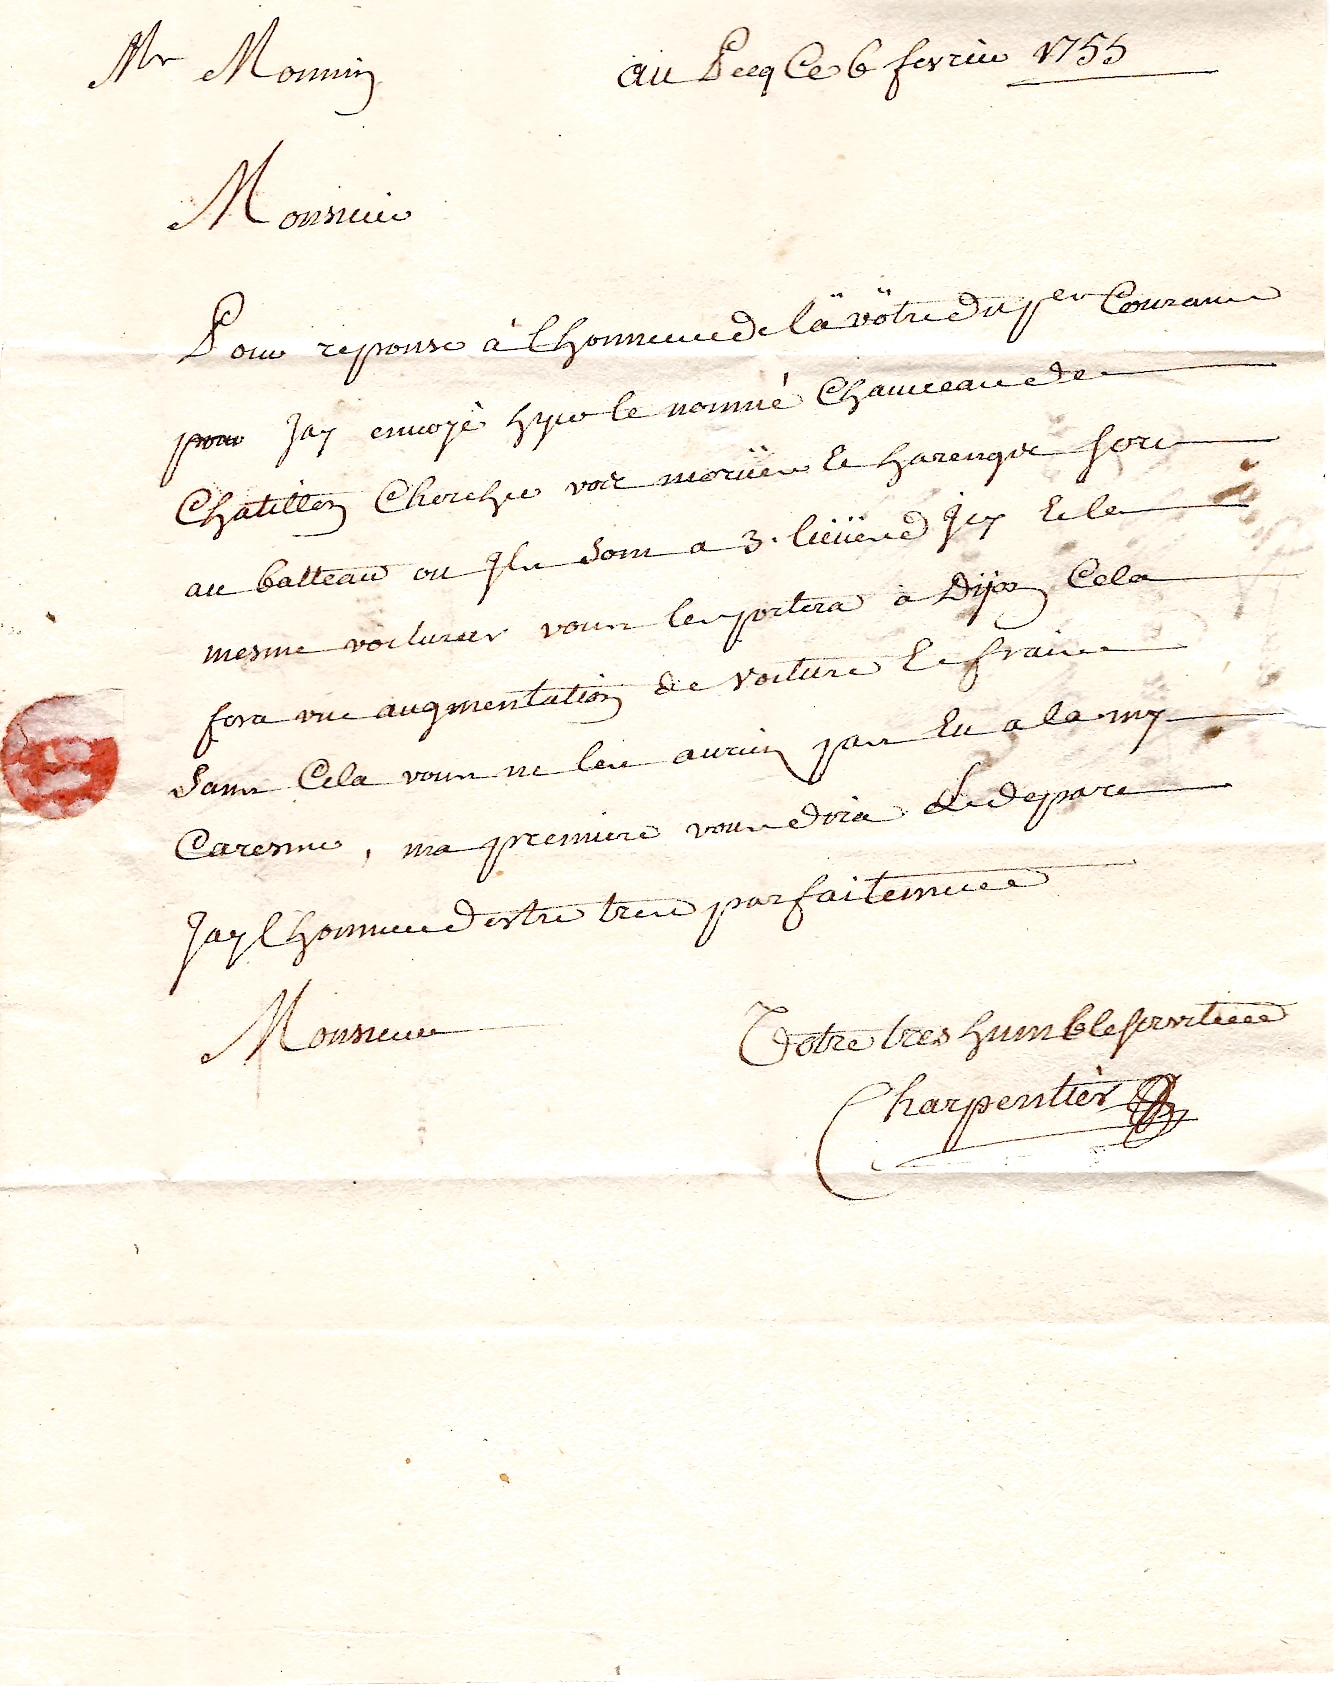 Mr Monnin
au Pecq Ce 6 fevrier 1755
Monsieur
Pour reponse à Lhonneur de la vôtre du per Courant
pour Jay envoyé hyer le nommé Chauveau de
Chatillon Chercher vos moruës Et harengs sors
au batteau ou Jls sont a 3. lieües d'Jcy Et le
mesme voiturier vous les portera à Dijon Cela
fera une augmentation de voiture Et frais
Sans Cela vous ne les auriez pas Eu a la my
Caresme, ma premiere vous dira Le depart
Jay Lhonneur destre tres parfaitement
Monsieur
Votre tres humble serviteur
Charpentier